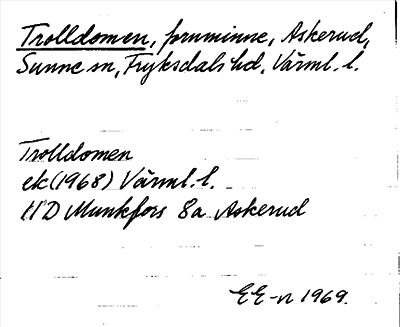 Trolldomen, fornminne, Askerud,
Sunne sn, Fryksdals hd, Värml. l.
Trolldomen
ek (1968) Värml. l.
HD Munkfors 8a Askerud
EE-n 1969.